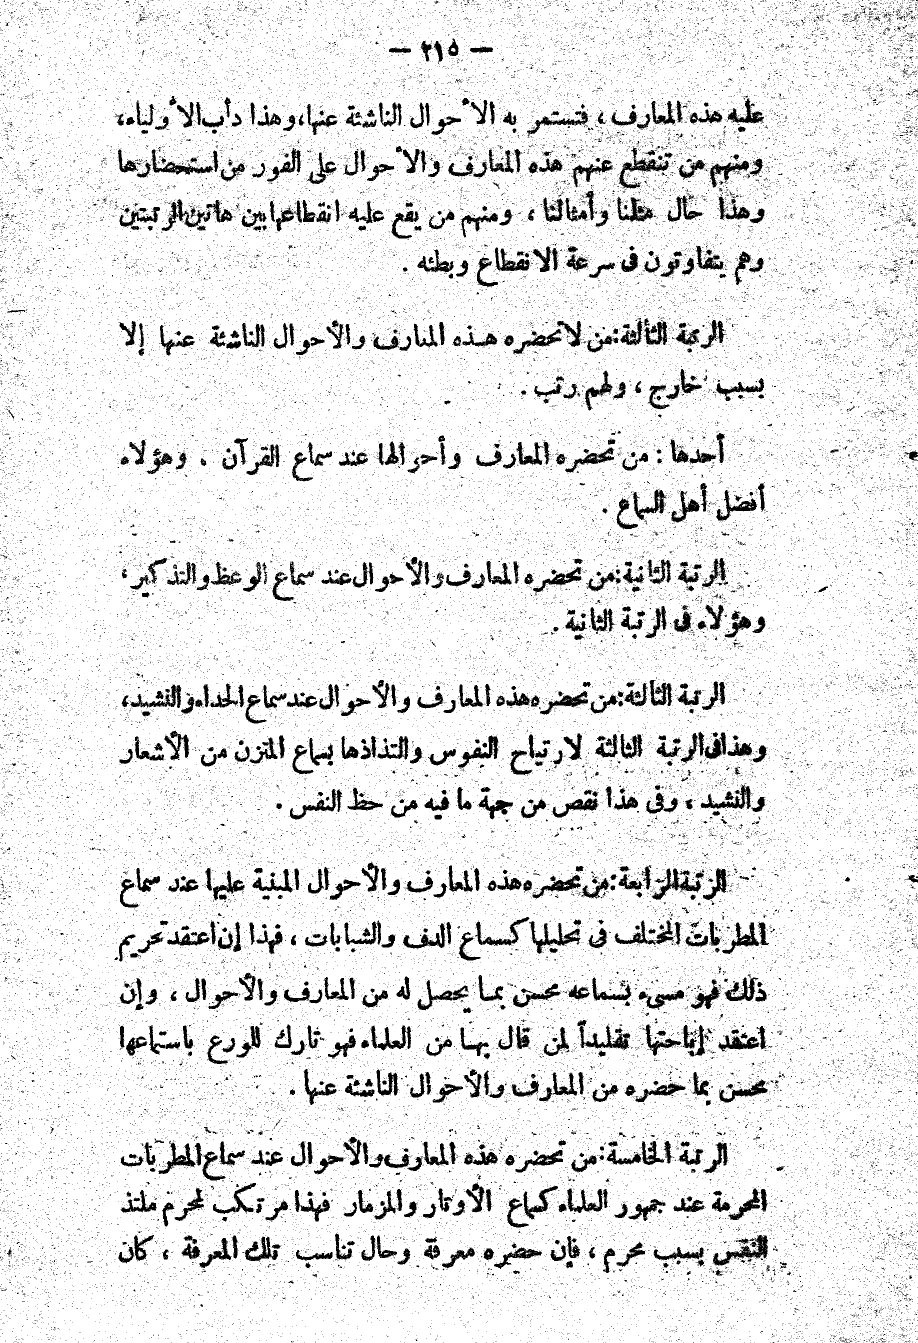 — ٢١٥ —
عليه هذه المعارف ، فتستمر به الأحوال الناشئة عنها، وهذا دأب الأولياء،
ومنهم من تنقطع عنهم هذه المعارف والأحوال على الفور من استحضارها
وهذا حال مثلنا وأمثالنا ، ومنهم من يقع عليه انقطاعها بين هاتين الرتبتين
وهم يتفاوتون فى سرعة الانقطاع وبطئه .
الرتبة الثالثة: من لا تحضره هذه المعارف والأحوال الناشئة عنها إلا
بسبب خارج ، ولهم رتب .
أحدها : من تحضره المعارف وأحوالها عند سماع القرآن . وهؤلاء
أفضل أهل السماع .
الرتبة الثانية: من تحضره المعارف والأحوال عند سماع الوعظ والتذكير ،
وهؤلاء فى الرتبة الثانية .
الرتبة الثالثة: من تحضره هذه المعارف والأحوال عند سماع الحداء والنشيد،
وهذا فى الرتبة الثالثة لارتياح النفوس والتذاذها بسماع المتزن من الأشعار
والنشيد ، وفى هذا نقص من جهة ما فيه من حظ النفس .
الرتبة الرابعة: من تحضره هذه المعارف والأحوال المبنية عليها عند سماع
المطربات المختلف فى تحليلها كسماع الدف والشبابات ، فهذا إن اعتقد تحريم
ذلك فهو مسىء بسماعه محسن بما يحصل له من المعارف والأحوال ، وإن
اعتقد إباحتها تقليداً لمن قال بها من العلماء فهو تارك للورع باستماعها
محسن بما حضره من المعارف والأحوال الناشئة عنها .
الرتبة الخامسة: من تحضره هذه المعارف والأحوال عند سماع المطربات
المحرمة عند جمهور العلماء كسماع الأوتار والمزمار فهذا مرتكب لمحرم ملتذ
النفس بسبب محرم ، فإن حضره معرفة وحال تناسب تلك المعرفة ، كان